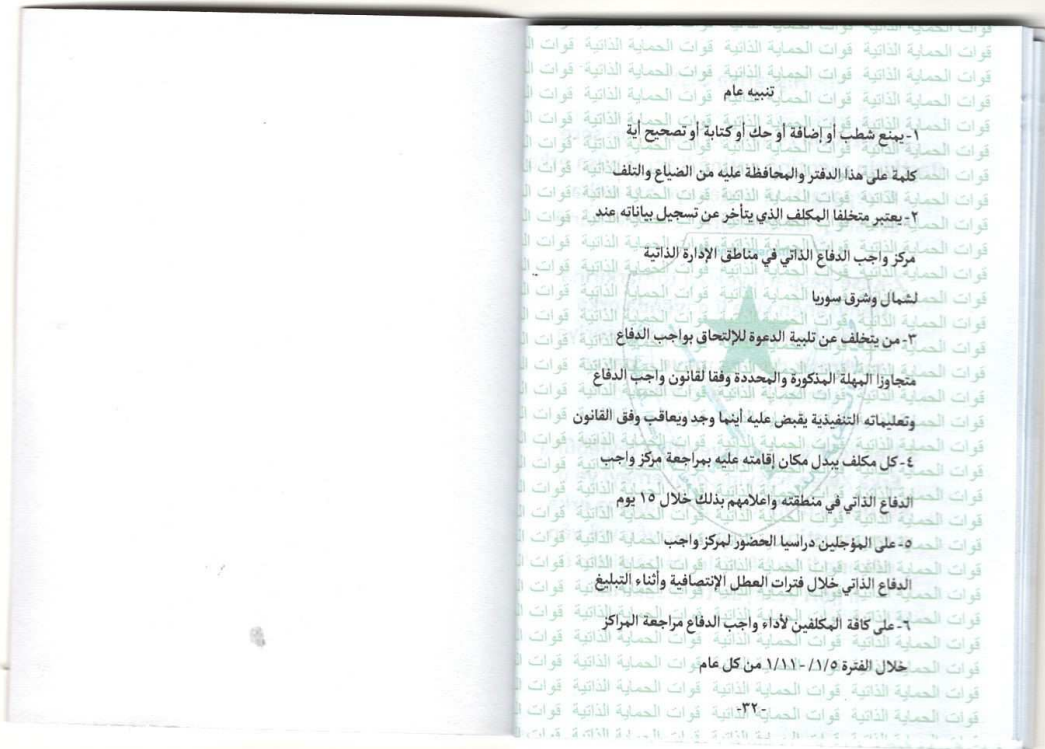 تنبيه عام
١- يمنع شطب أو إضافة أو حك أو كتابة أو تصحيح أية
كلمة على هذا الدفتر والمحافظة عليه من الضياع والتلف
٢- يعتبر متخلفا المكلف الذي يتأخر عن تسجيل بياناته عند
مركز واجب الدفاع الذاتي في مناطق الإدارة الذاتية
لشمال وشرق سوريا
٣- من يتخلف عن تلبية الدعوة للإلتحاق بواجب الدفاع
متجاوزا المهلة المذكورة والمحددة وفقا لقانون واجب الدفاع
وتعليماته التنفيذية يقبض عليه أينما وجد ويعاقب وفق القانون
٤- كل مكلف يبدل مكان إقامته عليه بمراجعة مركز واجب
الدفاع الذاتي في منطقته واعلامهم بذلك خلال ١٥ يوم
٥- على المؤجلين دراسيا الحضور لمركز واجب
الدفاع الذاتي خلال فترات العطل الإنتصافية وأثناء التبليغ
٦- على كافة المكلفين لأداء واجب الدفاع مراجعة المراكز
خلال الفترة ١/٥/ - ١/١١ من كل عام
-٣٢-